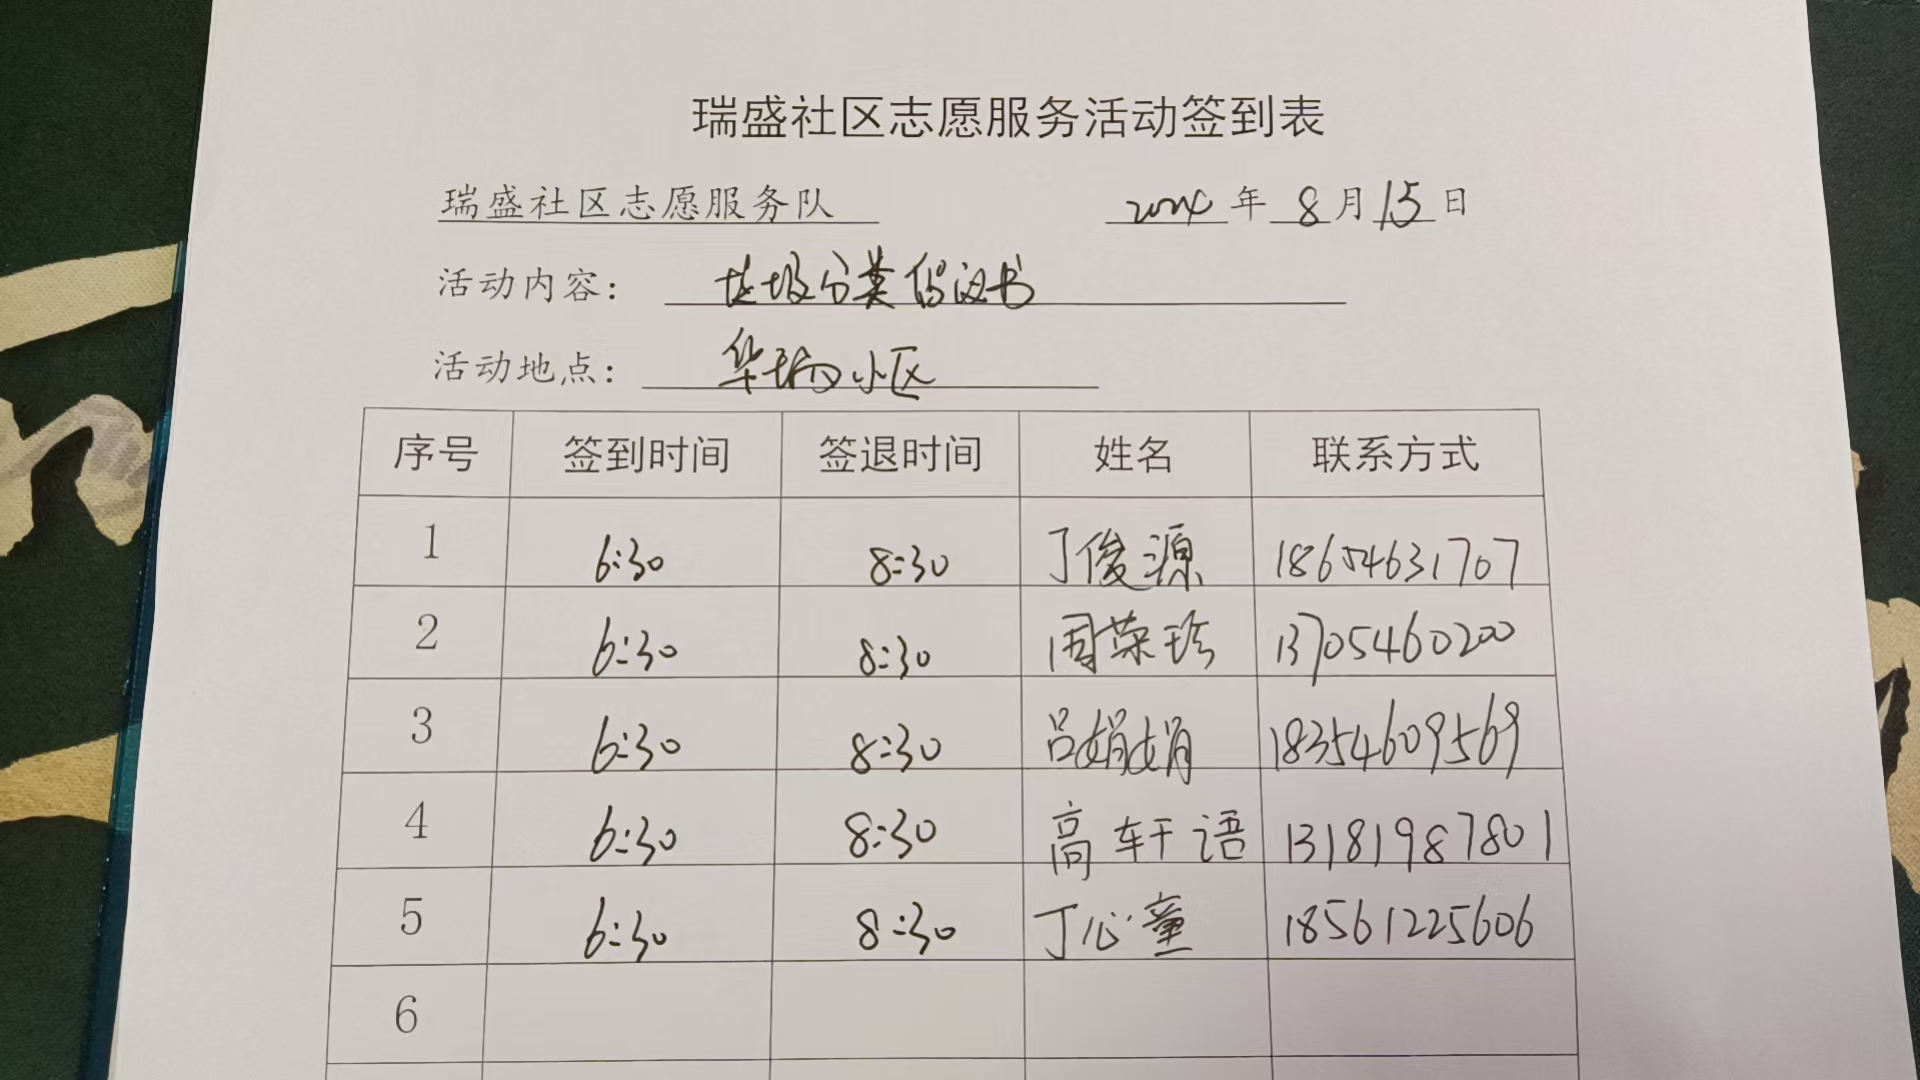 瑞盛社区志愿服务活动签到表
瑞盛社区志愿服务队 2024 年 8 月 15 日
活动内容： 垃圾分类倡议书
活动地点： 华瑞小区
序号 签到时间 签退时间 姓名 联系方式
1 6:30 8:30 丁俊源 18654631707
2 6:30 8:30 周荣珍 13705460200
3 6:30 8:30 吕娟娟 18354609569
4 6:30 8:30 高轩语 13181987801
5 6:30 8:30 丁心童 18561225606
6